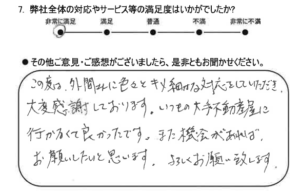 7. 弊社全体の対応やサービス等の満足度はいかがでしたか?
非常に満足 満足 普通 不満 非常に不満
●その他ご意見・ご感想がございましたら、是非ともお聞かせください。
この度は、外関みに色々とキメ細かな対応をしていただき、
大変感謝しております。いつもの大手不動産屋に
行かなくて良かったです。また機会があれば、
お願いしたいと思います。よろしくお願い致します。